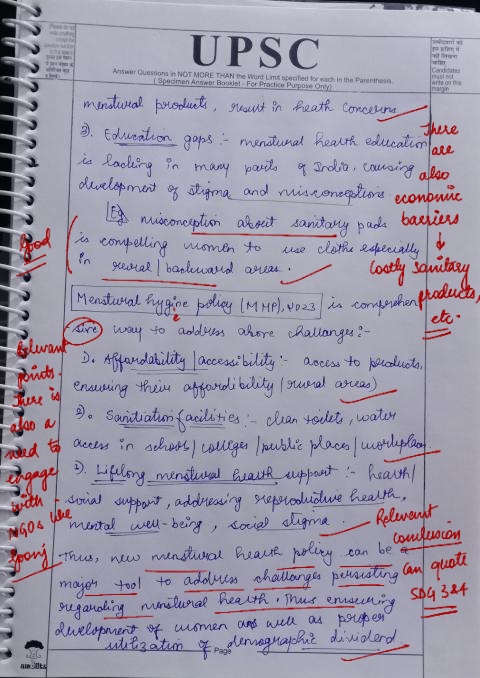 UPSC
Answer Questions in NOT MORE THAN the Word Limit specified for each in the Parenthesis.
( Specimen Answer Booklet - For Practice Purpose Only)
उम्मीदवारों को
इस हाशिए में
नहीं लिखना
चाहिए
Candidates
must not
write on this
margin
menstural products, result in heath concerns
3). Education gaps :- menstural health education
is lacking in many parts of India, causing
development of stigma and misconceptions
Eg misconception about sanitary pads
is compelling women to use clothe especially
in reural/backward areas.
Good
There
are
also
economic
barriers
↓
Costly sanitary
products,
etc.
Menstural hygine policy (MHP), 2023 is comprehen
i
sive way to address above challanges :-
1). Affordability/accessibility :- access to products,
ensuring their affordibility (rural areas)
2). Sanitiation facilities :- clean toilets, water
access in school/colleges/public places/workplace.
3). Lifelong menstural health support :- health/
social support, addressing reproductive health,
mental well-being, social stigma.
Relevant
points.
There is
also a
need to
engage
with
NGOs like
Goonj
Thus, new menstural health policy can be a
major tool to address challanges persisting
regarding menstural health. Thus ensuring
development of women as well as proper
utilization of demographic dividend.
Relevant
conclusion
Can quote
SDG 3&4
Page